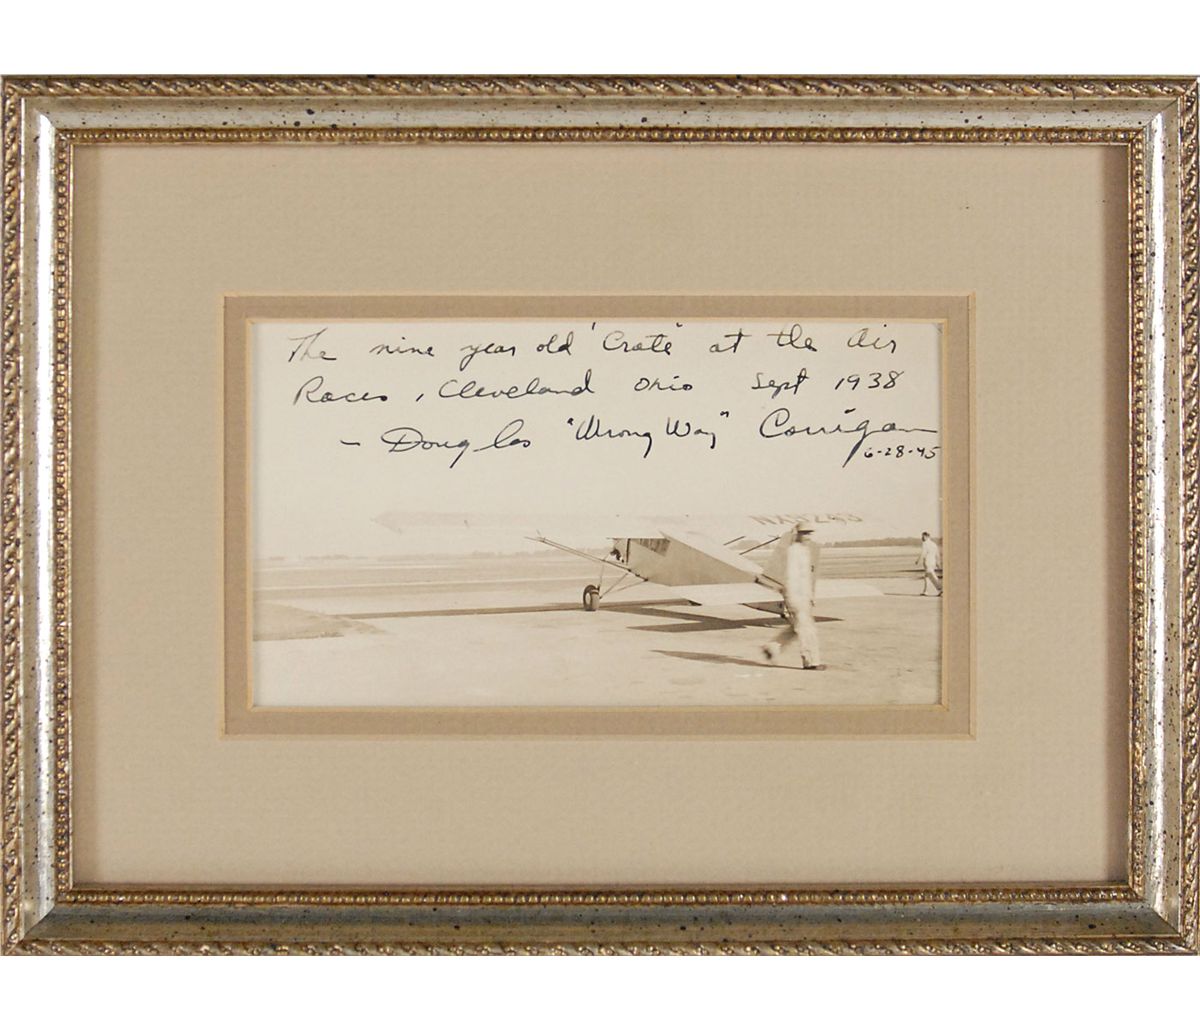 The nine year old "Crate" at the Air
Races, Cleveland Ohio Sept 1938
- Douglas "Wrong Way" Corrigan
6-28-45
NX9243